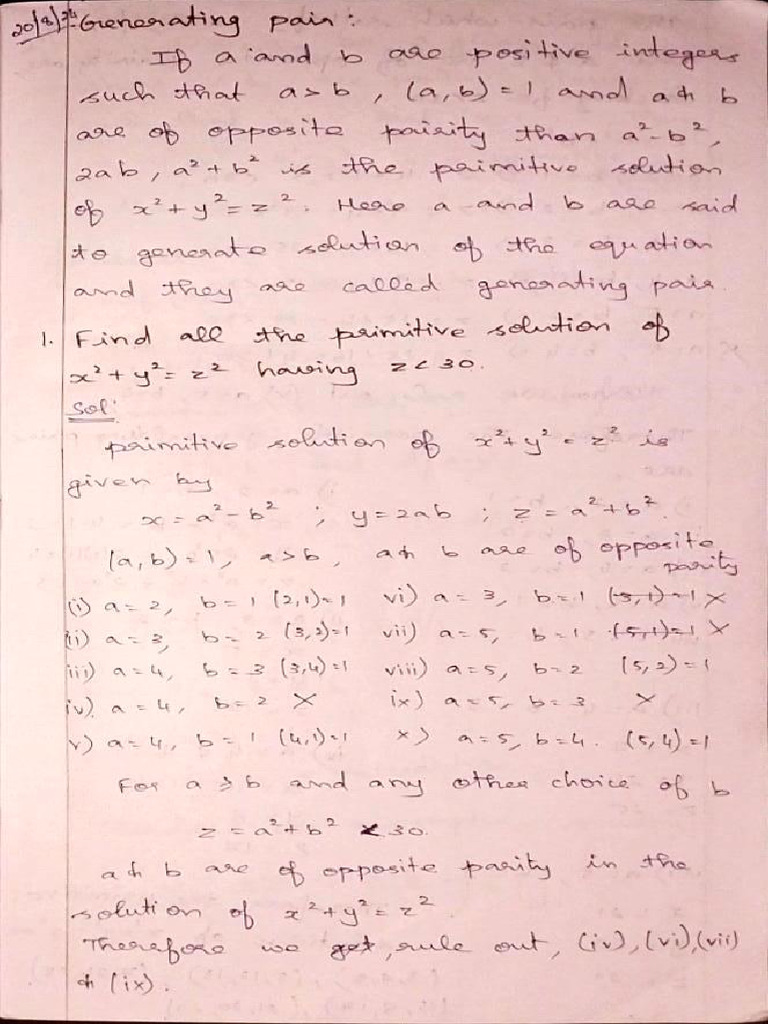 20/8/24 Generating pair:
If a and b are positive integers
such that a>b, (a,b)=1 and a & b
are of opposite pairity than a²-b²,
2ab, a²+b² is the primitive solution
of x²+y²=z². Here a and b are said
to generate solution of the equation
and they are called generating pair.
1. Find all the primitive solution of
x²+y²=z² having z<30.
Sol:
primitive solution of x²+y²=z² is
given by
x=a²-b² ; y=2ab ; z=a²+b².
(a,b)=1, a>b, a & b are of opposite
parity
(i) a=2, b=1 (2,1)=1 vi) a=3, b=1 (3,1)=1 X
ii) a=3, b=2 (3,2)=1 vii) a=5, b=1 (5,1)=1 X
iii) a=4, b=3 (3,4)=1 viii) a=5, b=2 (5,2)=1
iv) a=4, b=2 X ix) a=5, b=3 X
v) a=4, b=1 (4,1)=1 x) a=5, b=4. (5,4)=1
For a b and any other choice of b
z=a²+b² 30.
a & b are of opposite parity in the
solution of x²+y²=z²
Therefore we get, rule out, (iv), (vi), (vii)
& (ix).